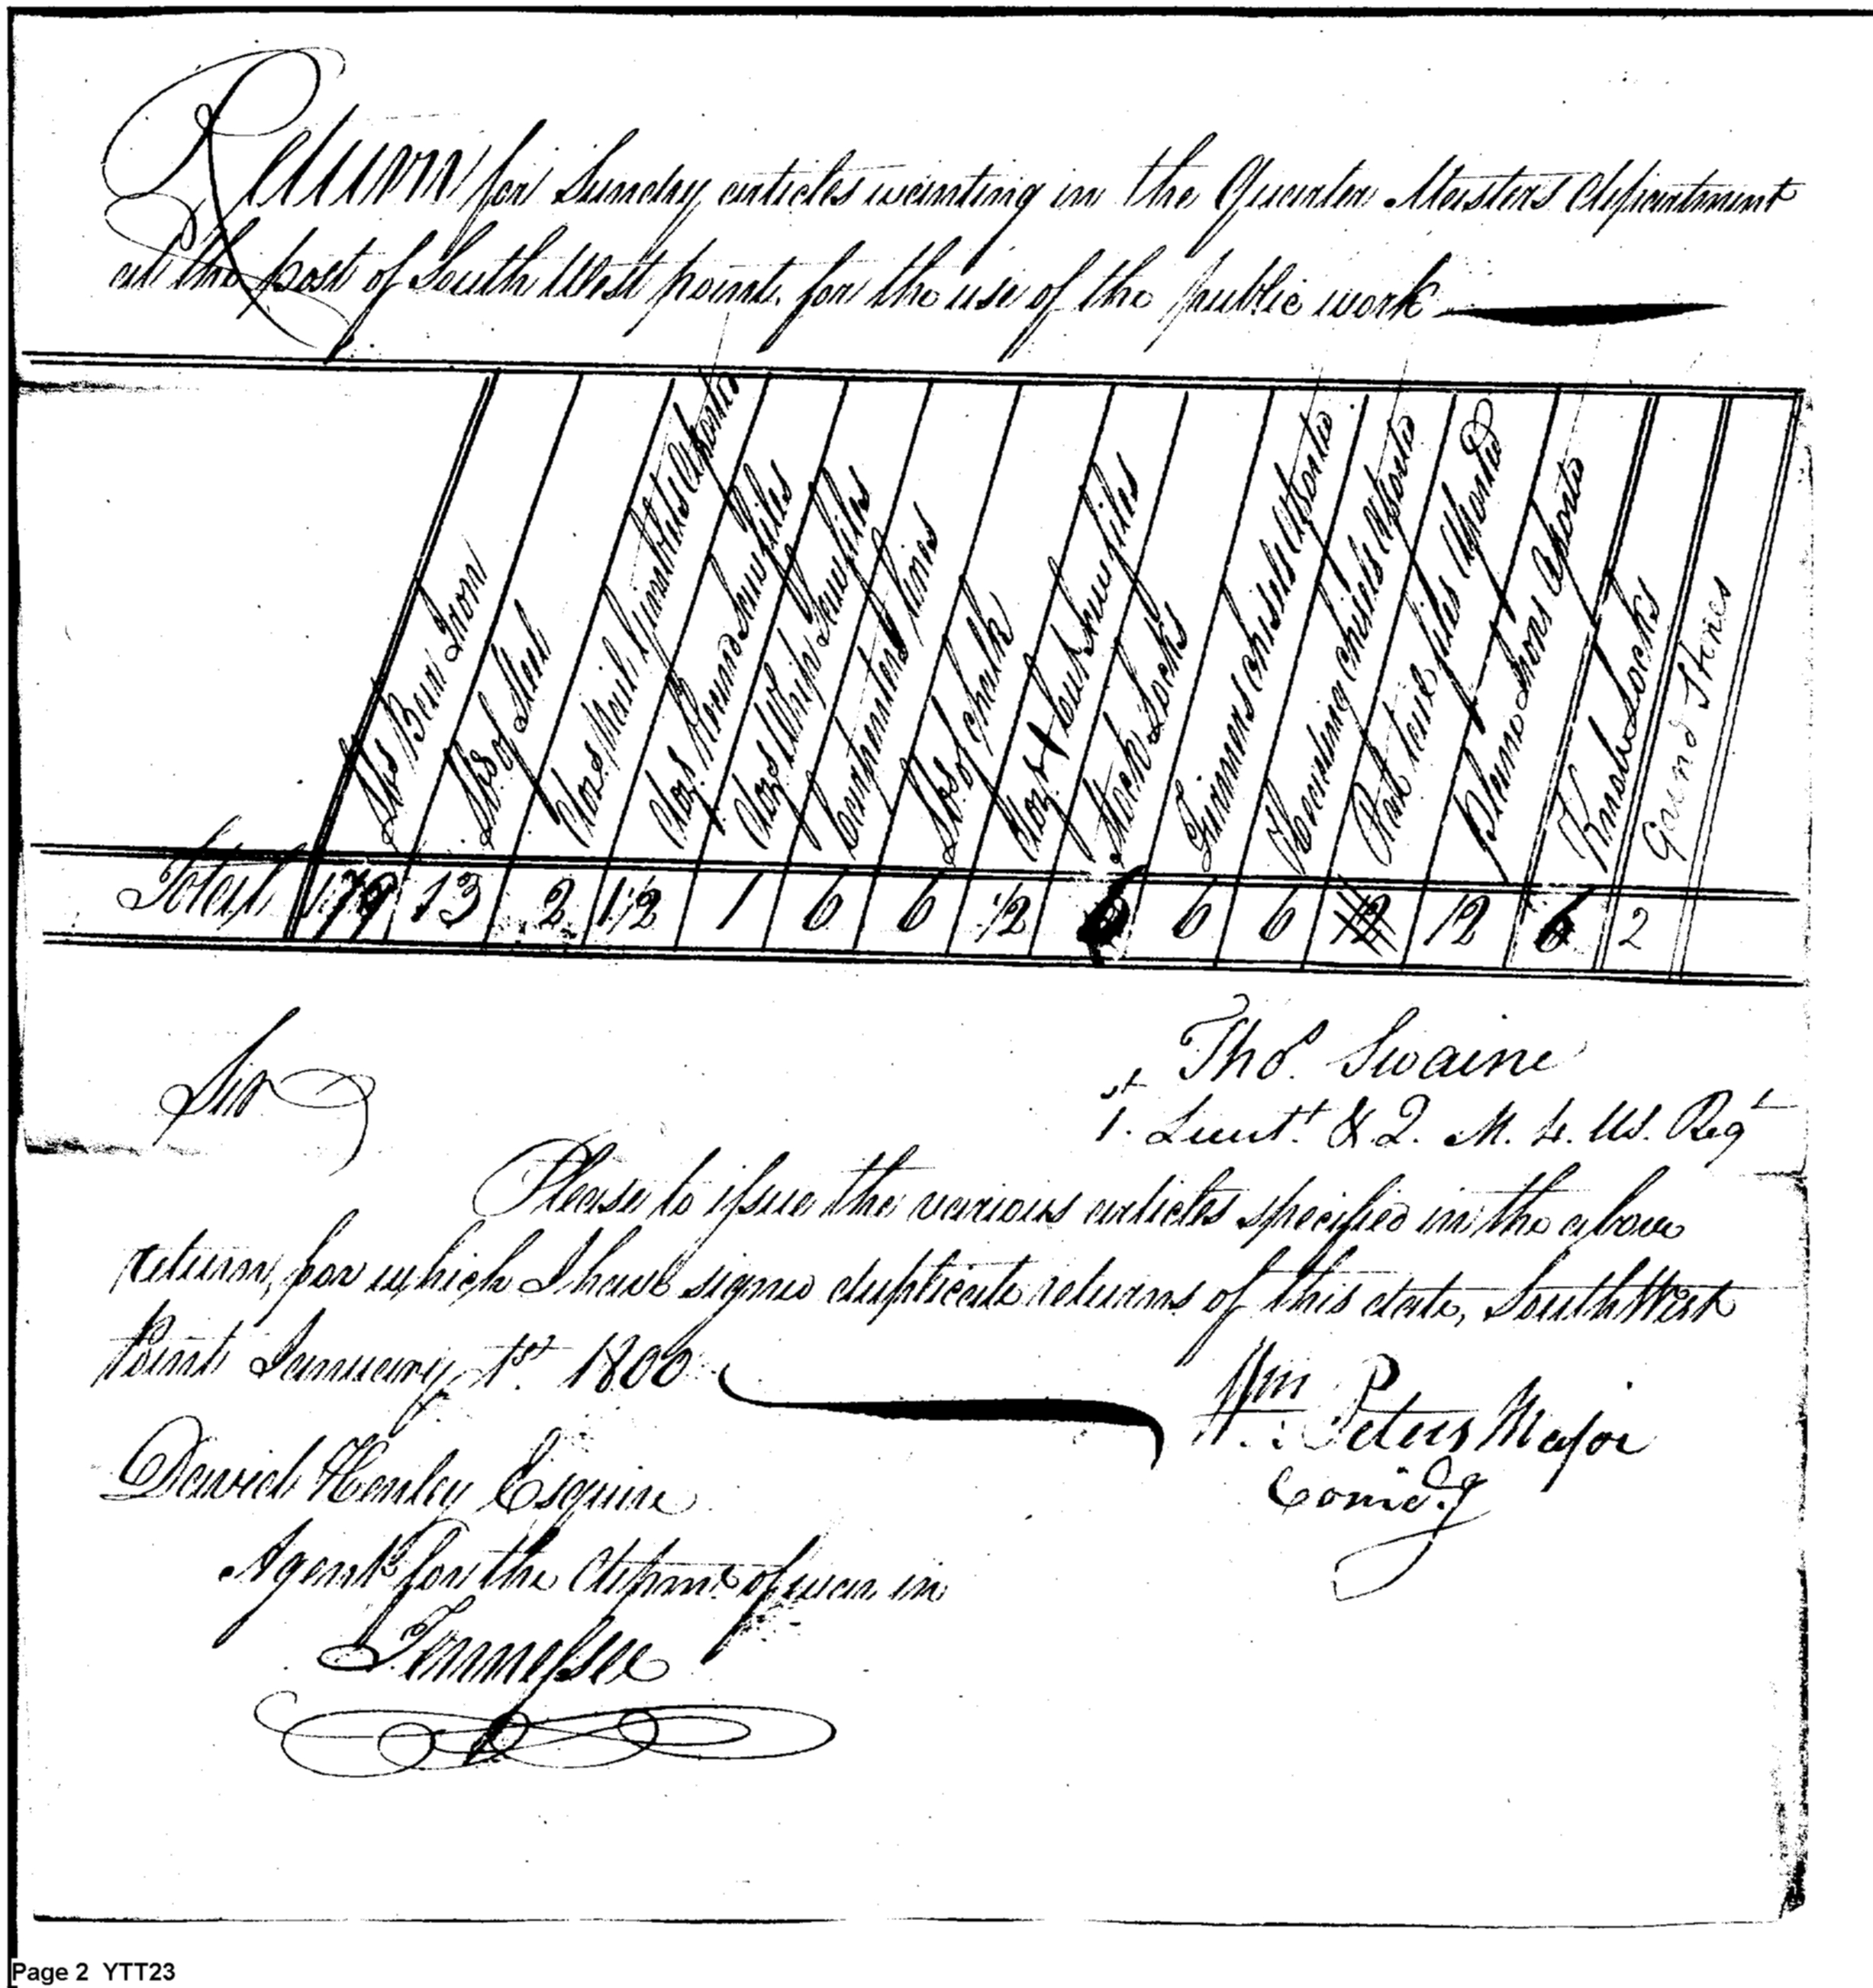 Return for Sundry articles wanting in the Quarter Masters department
at the post of South West point, for the use of the public work
lbs Barr Iron
lbs of Steel
Doz. Nail Gimblets Assorted
Doz. Hound Saw files
Doz. Whip Saw files
Carpenters lines
lbs of Chalk
Doz. X Cut Saw files
Stock Locks
Firmers Chisels Assorted
Plain Irons Assorted
Knob Locks
Grind Stones
Total 179 13 2 1 1/2 1 6 6 1/2 6 6 6 12 12 6 2
Thos. Swaine
1st. Lieutt. & Q. M. 4. US. Regt
Sir
Please to issue the various articles specified in the above
return, for which I have signed duplicate returns of this date, South West
Point January 1st. 1800
Wm. Peters Major
Comdg
David Henley Esquire
Agent for the depmt of war in
Tennessee
Page 2 YTT23